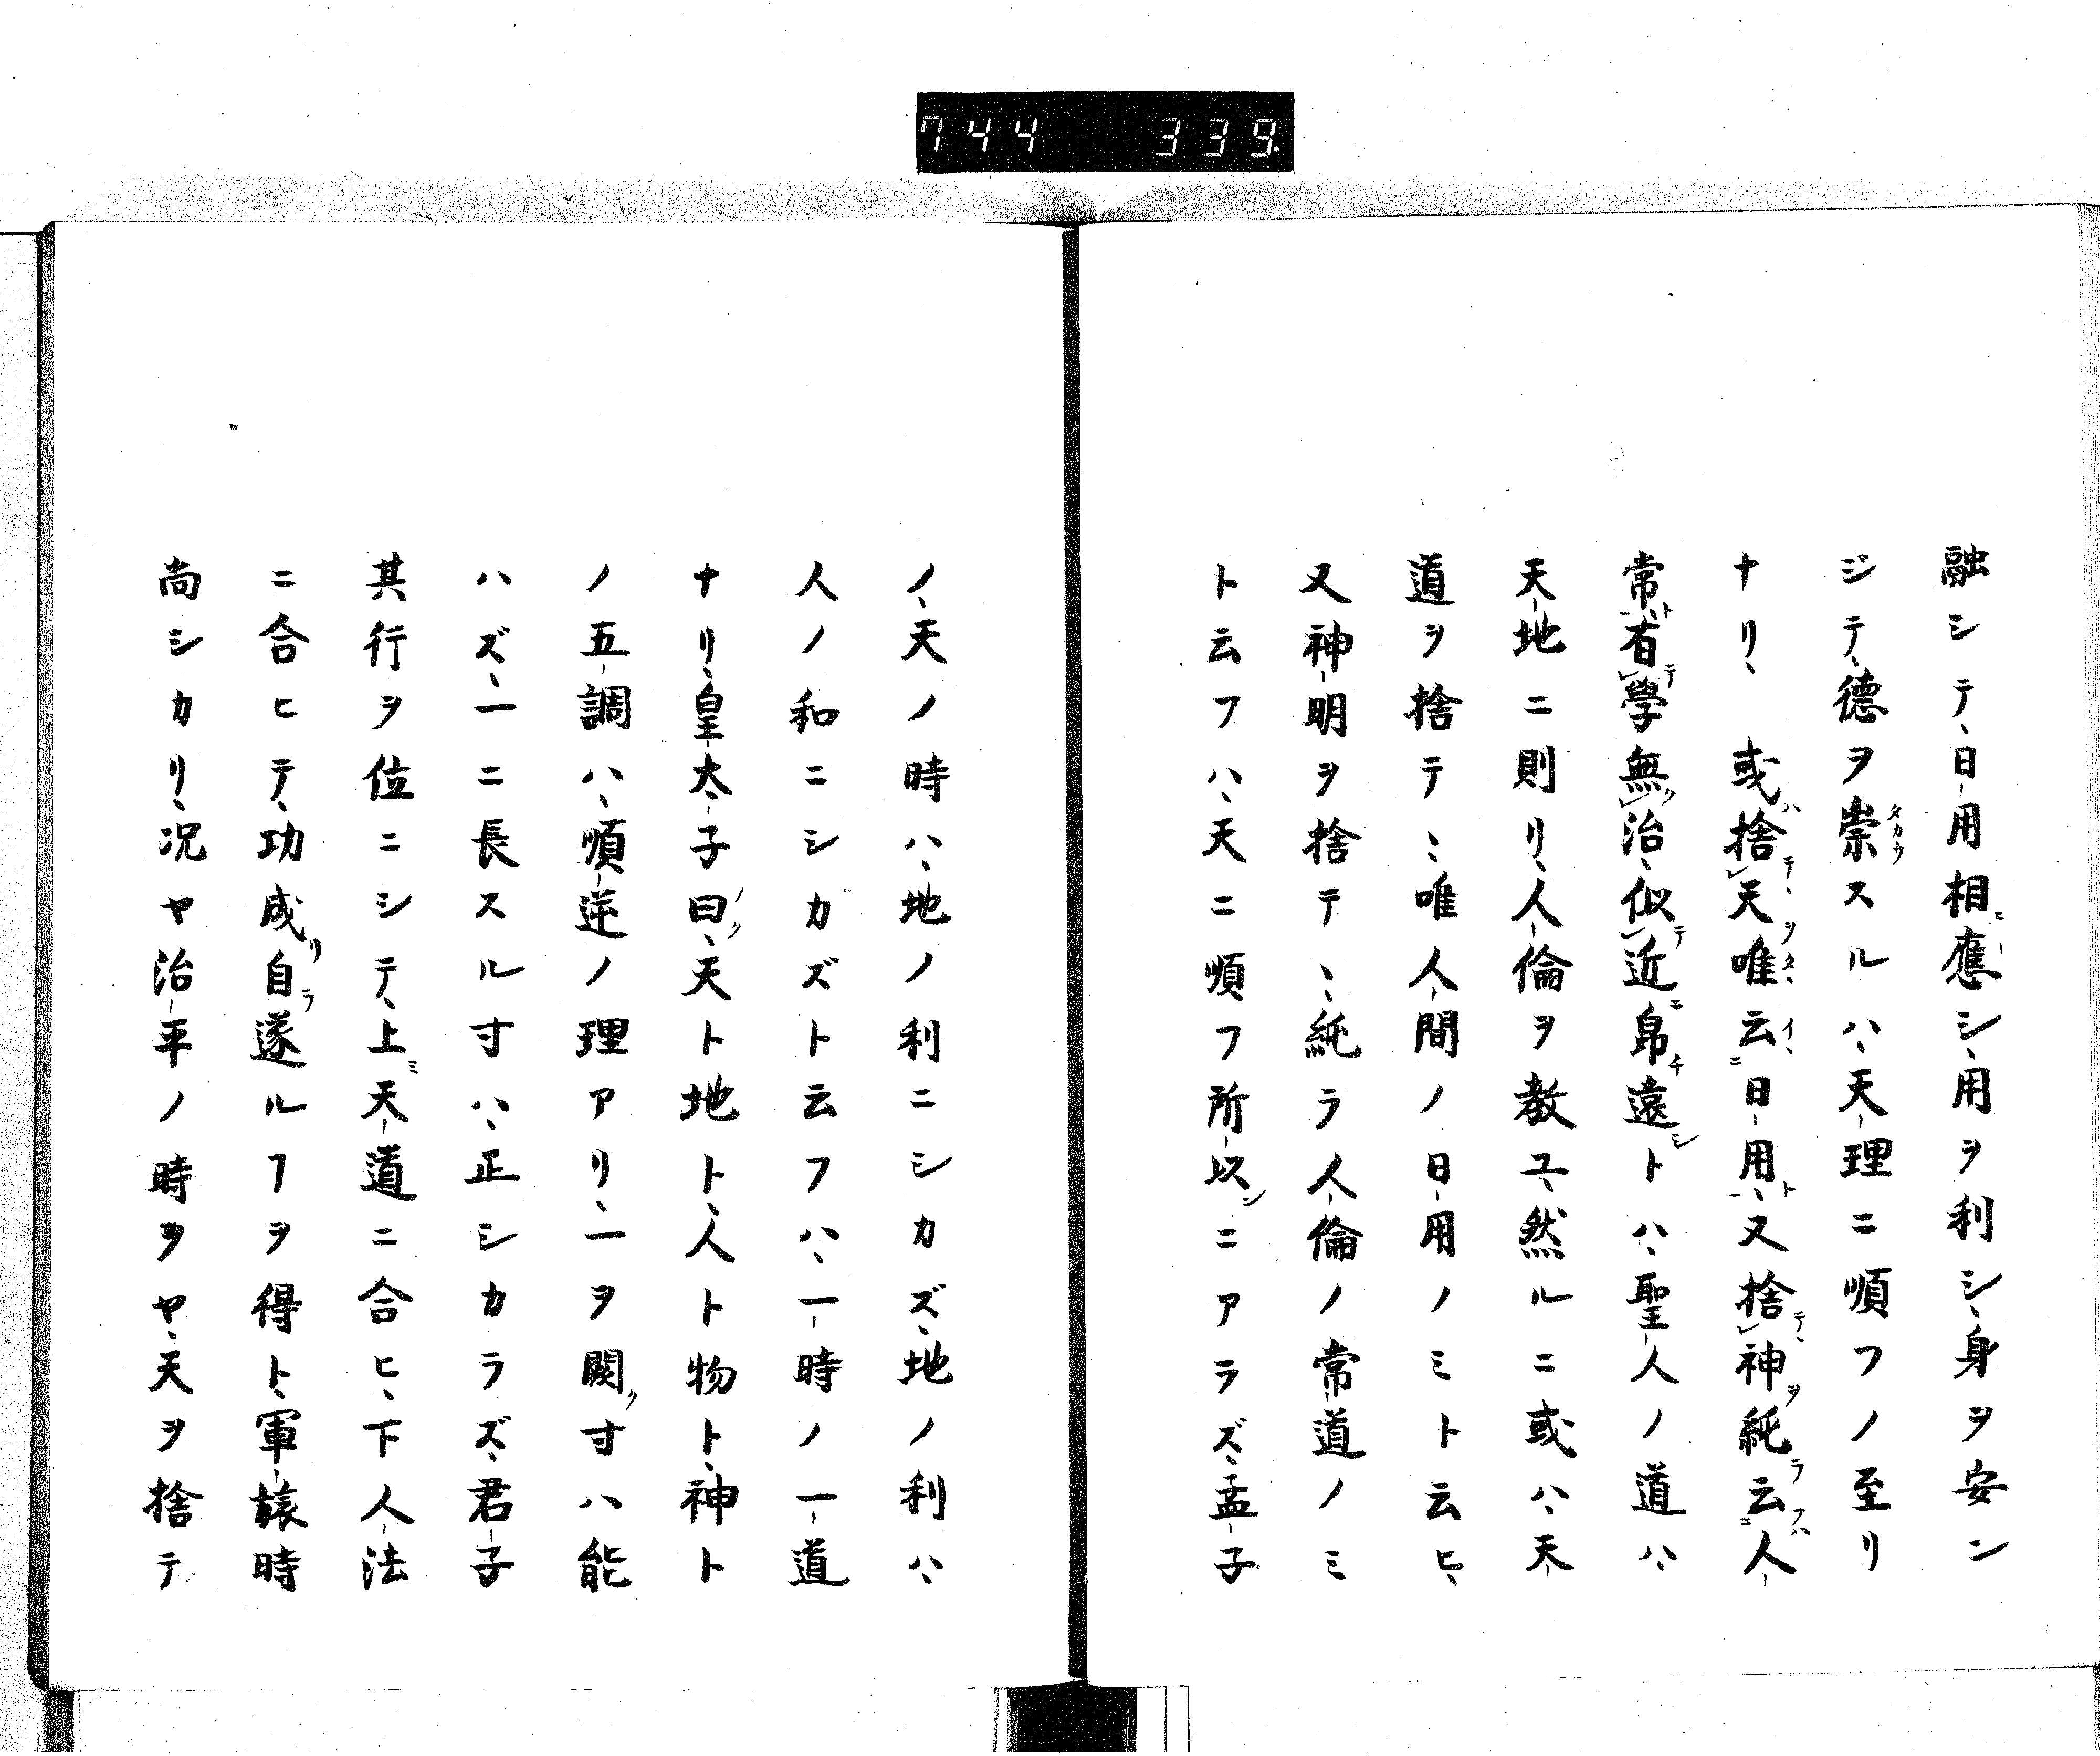 744 339.
融シテ、日用相應シ、用ヲ利シ、身ヲ安ン
ジテ、德ヲ崇スルハ、天理ニ順フノ至リ
ナリ、或捨天唯云日用、又捨神純云人
常、有學無治、似近帛遠トハ、聖人ノ道ハ
天地ニ則リ、人倫ヲ教ユ、然ルニ或ハ、天
道ヲ捨テヽ、唯人間ノ日用ノミト云ヒ、
又神明ヲ捨テヽ、純ラ人倫ノ常道ノミ
ト云フハ、天ニ順フ所以ニアラズ、孟子
ノ、天ノ時ハ、地ノ利ニシカズ、地ノ利ハ、
人ノ和ニシカズト云フハ、一時ノ一道
ナリ、皇太子曰、天ト地ト、人ト物ト、神ト
ノ五調ハ、順逆ノ理アリ、一ヲ闕寸ハ能
ハズ、一ニ長スル寸ハ、正シカラズ、君子
其行ヲ位ニシテ、上天道ニ合ヒ、下人法
ニ合ヒテ、功成自遂ルヿヲ得ト、軍旅時
尚シカリ、况ヤ治平ノ時ヲヤ、天ヲ捨テ